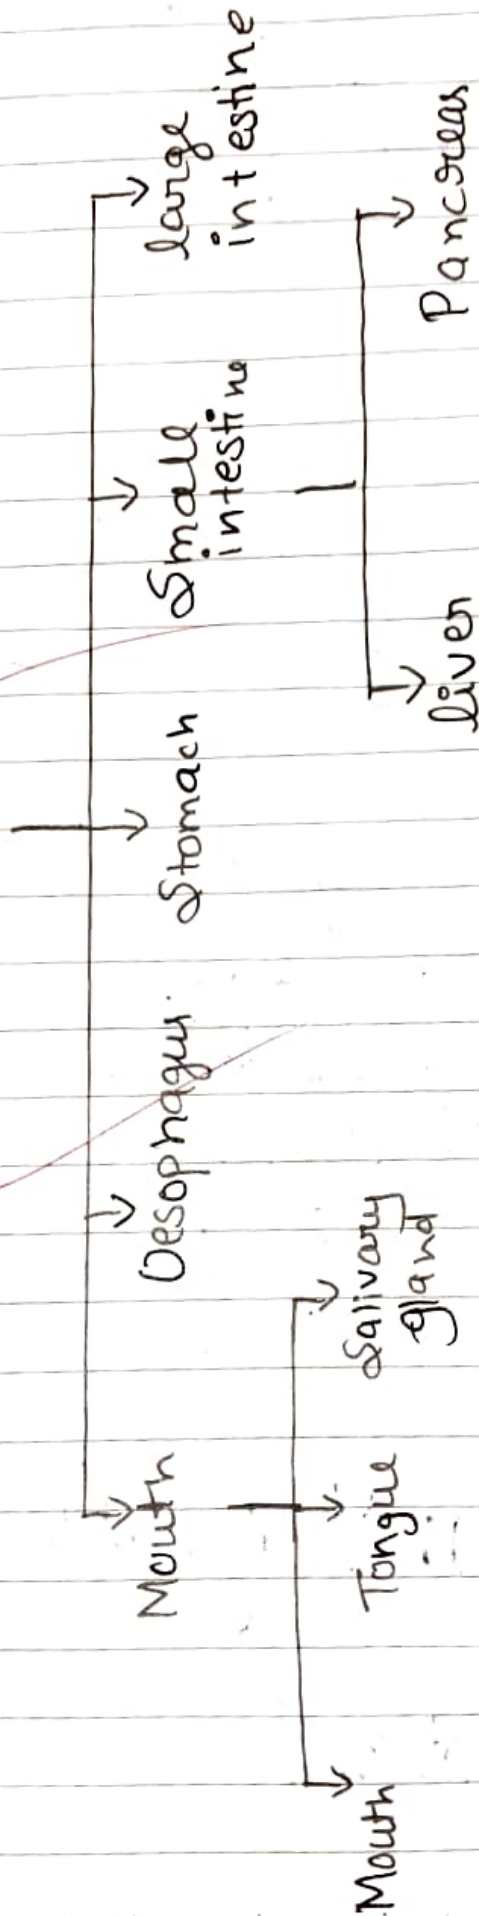 Mouth
Oesophagus
Stomach
Small
intestine
large
intestine
Mouth
Tongue
Salivary
gland
liver
Pancreas